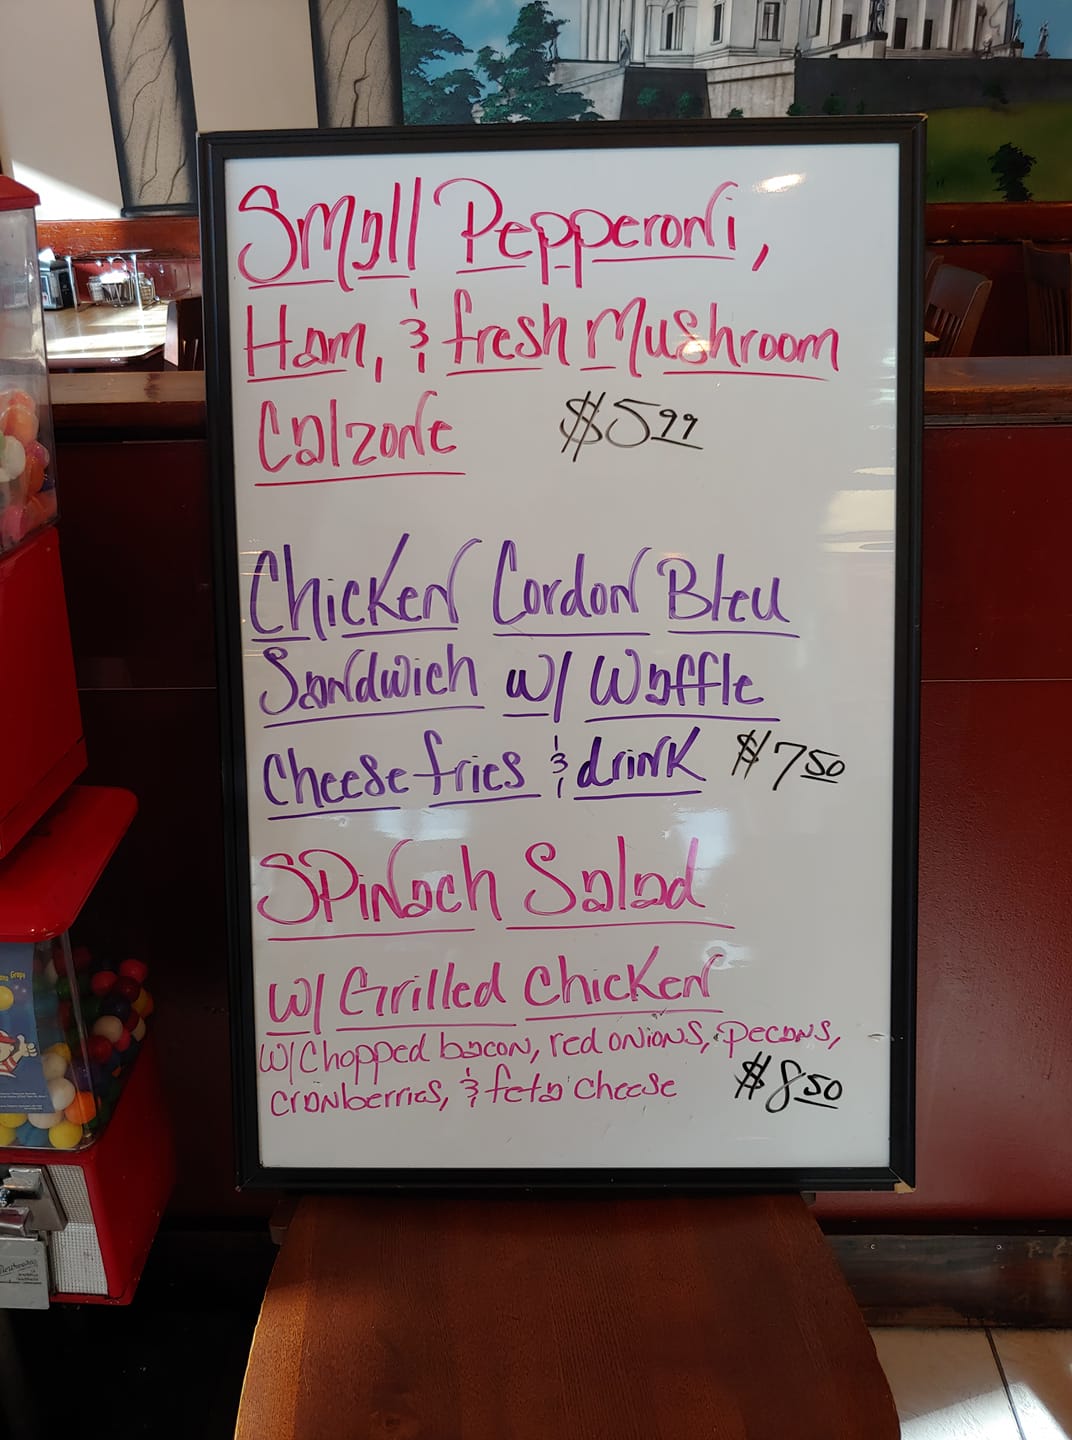 Small Pepperoni,
Ham, & fresh Mushroom
Calzone $5.99
Chicken Cordon Bleu
Sandwich w/ Waffle
Cheese fries & drink $7.50
Spinach Salad
w/ Grilled Chicken
w/ Chopped bacon, red onions, pecans,
cranberries, & feta cheese $8.50